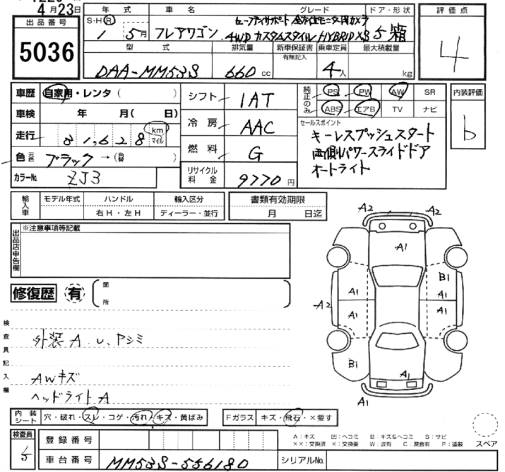 4月23日
出品番号 5036
年式 車名 グレード ドア・形状
S・H・R 1年 5月 フレアワゴン
4WD カスタムスタイル HYBRID XS 5 箱
評価点 4
型式 排気量 新車保証書 有無記入 乗車定員 最大積載量
DAA-MM53S 660cc 4人 kg
車歴 自家用・レンタ( )
車検 年 月( )
走行 31,628 km マイル
色 元色 ブラック → (替)
カラーNo. ZJ3
シフト 1AT
冷房 AAC
燃料 G
リサイクル料金 9770円
純正のみ PS PW AW SR
ABS エアB TV ナビ
内装評価 b
セールスポイント
キーレスプッシュスタート
両側パワースライドドア
オートライト
輸入車 モデル年式 ハンドル 輸入区分
右H・左H ディーラー・並行
書類有効期限
月 日迄
出品店申告欄 ※注意事項等記載
修復歴 有 箇所
検査員記入欄
外装 A U アシミ
AWキズ
ヘッドライト A
A2 A2
A1
B1
A1 A1
A2 A1 A1
B1
A1
A1
内装シート 穴・破れ・スレ・コゲ・汚れ・キズ・黄ばみ
Fガラス キズ・飛石・×要す
検査員
登録番号
車台番号 MM53S-556180
シリアルNo.
スペア